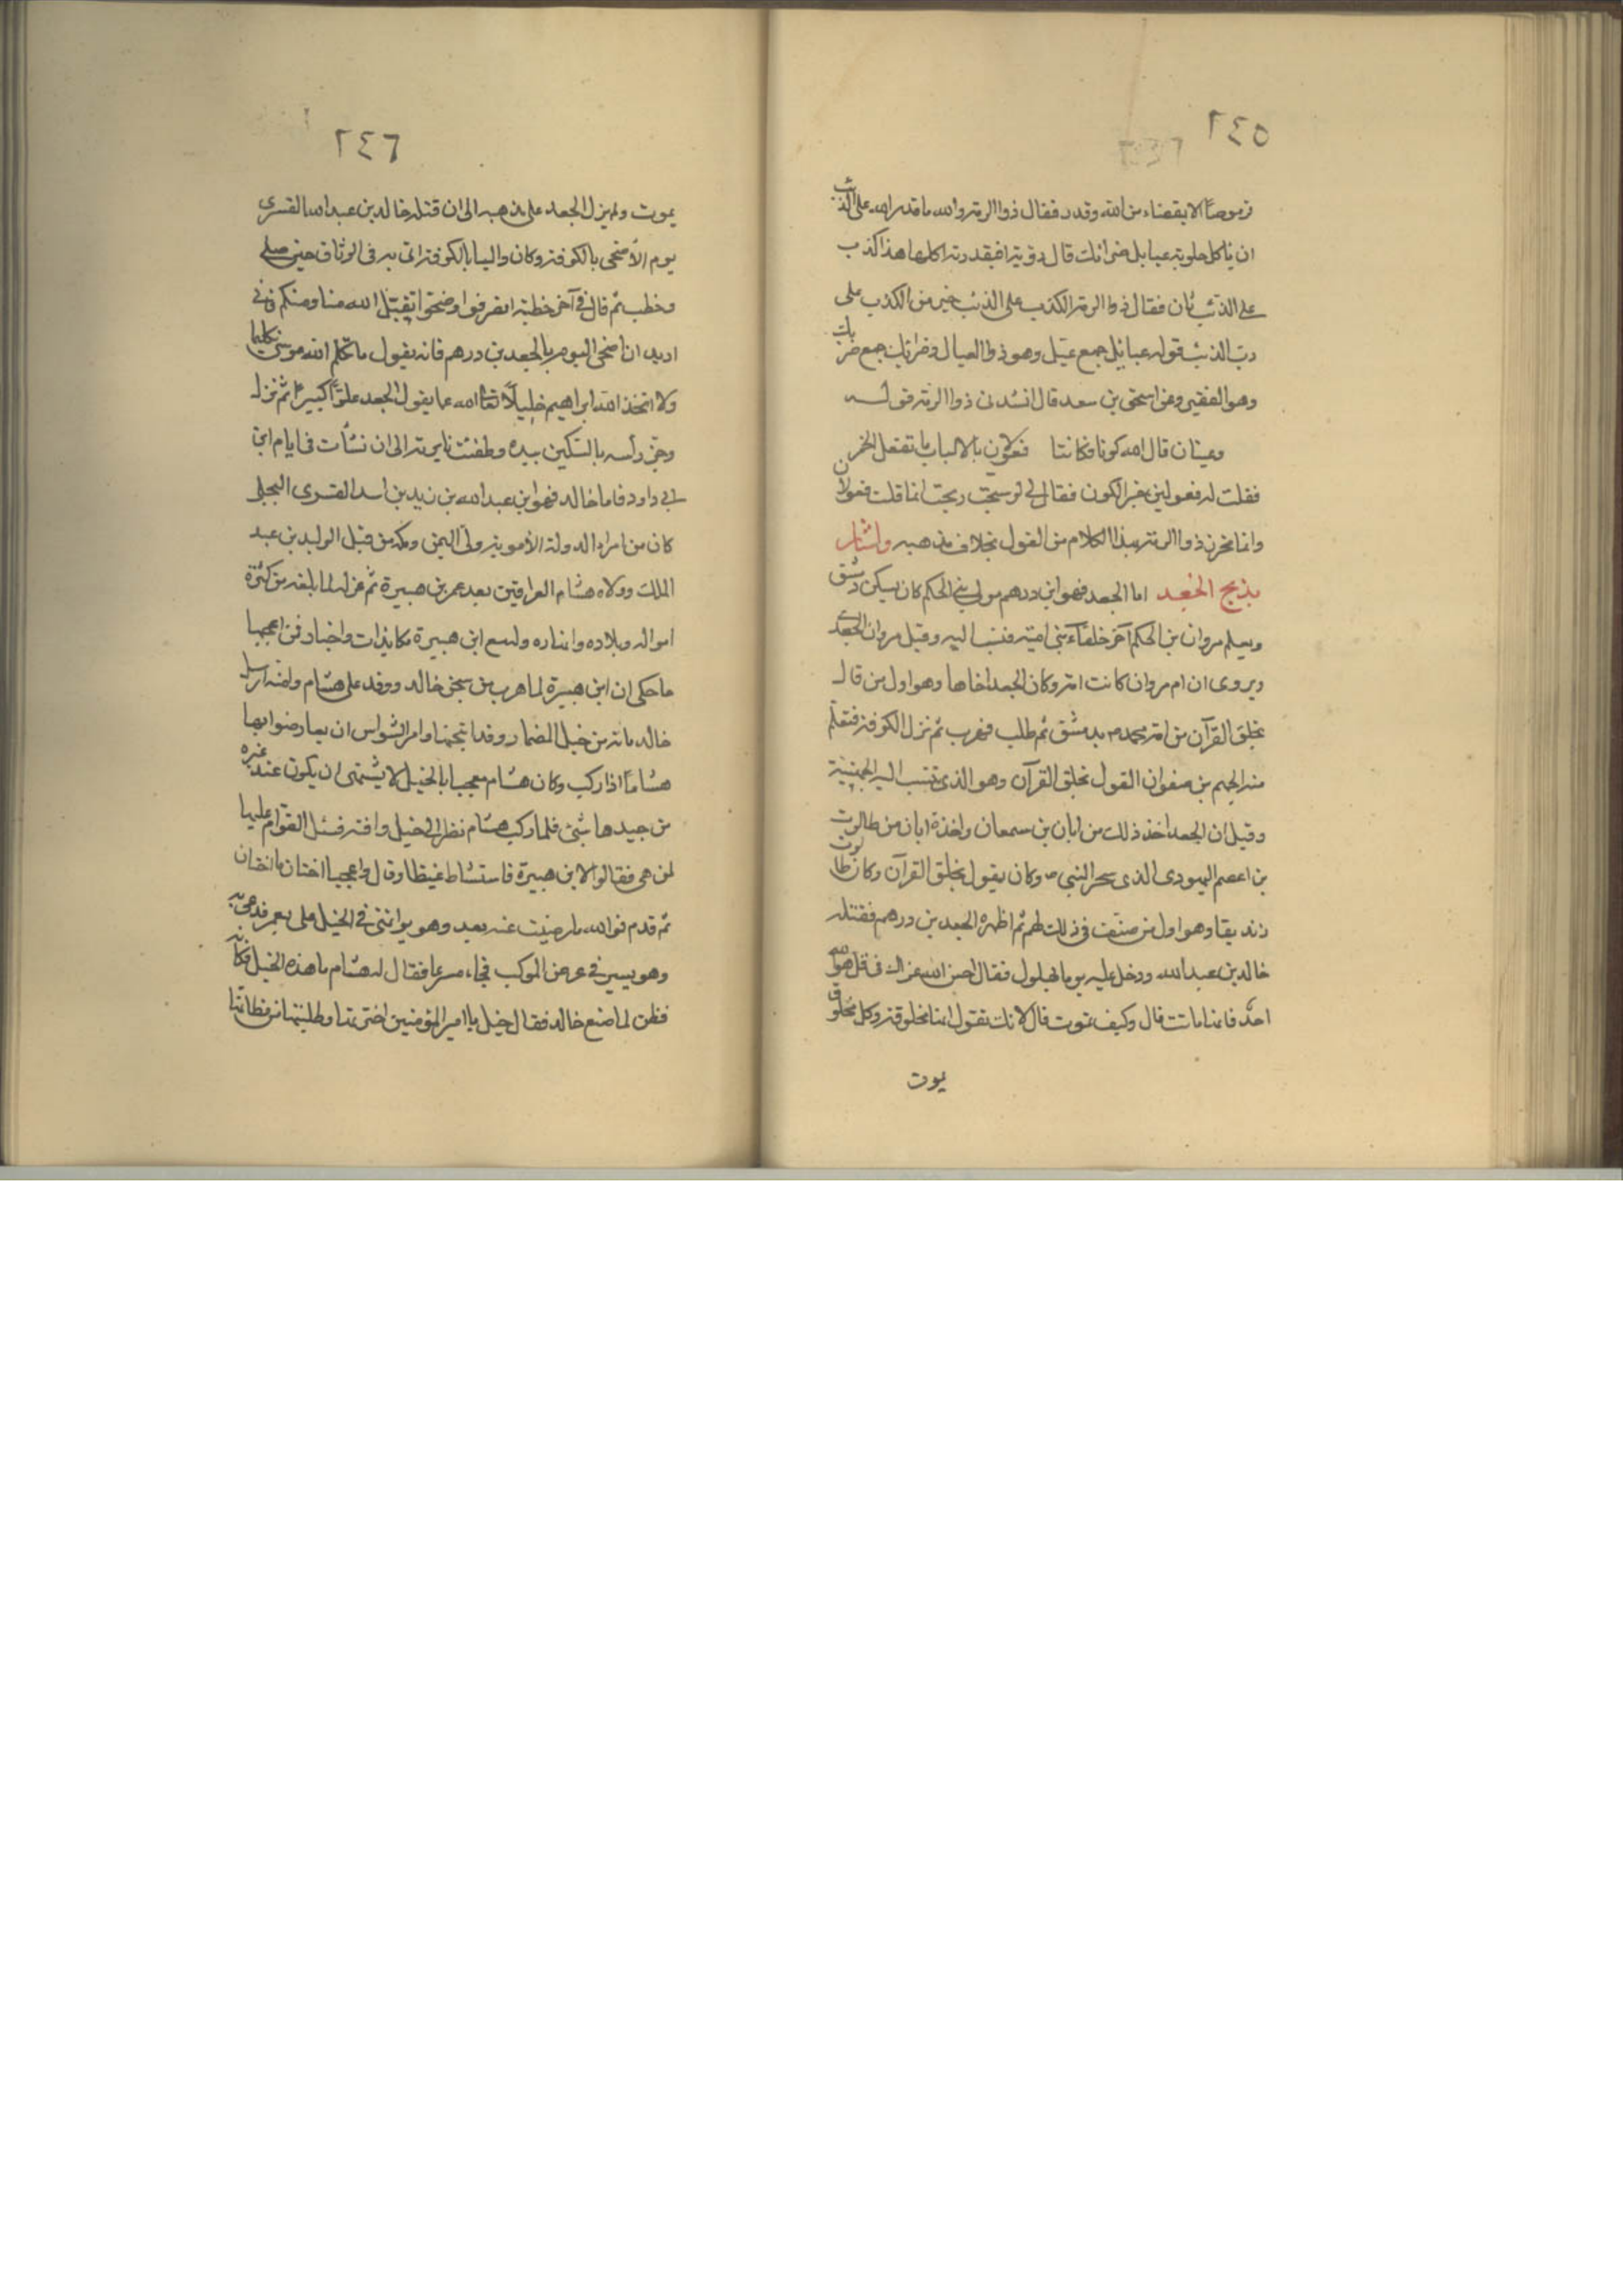 ٢٤٥
قرموصاً الا بقضاء من الله وقدر فقال ذو الرمة والله ما قدر الله على الذئب
ان ياكل حلوبة عيايل ضرائك قال رؤبة افبقدرته اكلها هذا كذب
على الذئب ثان فقال ذو الرمة الكذب على الذئب خير من الكذب على
رب الذئب قوله عيائيل جمع عيّل وهو ذو العيال وضرائك جمع ضريك
وهو الفقير وعن اسحق بن سعد قال انشدنى ذو الرمة قوله
وعينان قال الله كونا فكانتا فعولان بالالباب ما تفعل الخمر
فقلت له فعولين خبر الكون فقال لى لو سبّحت ربحت انما قلت فعولان
وانما تحرز ذو الرمة بهذا الكلام من القول بخلاف مذهبه واشار
بذبح الجعد اما الجعد فهو ابن درهم مولى بنى الحكم كان يسكن دمشق
ويعلم مروان بن الحكم آخر خلفآء بنى امية فنسب اليه وقيل مروان الجعدى
ويروى ان ام مروان كانت امة وكان الجعد اخاها وهو اول من قال
بخلق القرآن من امة محمد م بدمشق ثم طلب فهرب ثم نزل الكوفة فتعلم
منه الجهم بن صفوان القول بخلق القرآن وهو الذى تنسب اليه الجهمية
وقيل ان الجعد اخذ ذلك من ابان بن سمعان واخذه ابان من طالوت
بن اعصم اليهودى الذى سحر النبي ص وكان يقول بخلق القرآن وكان طالوت
زنديقا وهو اول من صنّف فى ذلك لهم ثم اظهره الجعد بن درهم فقتله
خالد بن عبد الله ودخل عليه يوما بهلول فقال احسن الله عزاك فى قل هو الله
احدٌ فانها ماتت قال وكيف تموت قال لانك تقول انها مخلوقة وكل مخلوق
يموت
٢٤٦
يموت ولم يزل الجعد على مذهبه الى ان قتله خالد بن عبد الله القسرى
يوم الأضحى بالكوفة وكان واليا بالكوفة اتى به فى الوثاق حين صلى
وخطب ثم قال فى آخر خطبته انصرفوا وضحّوا تقبّل الله منا ومنكم فانى
اريد ان اضحى اليوم بالجعد بن درهم فانه يقول ما كلم الله موسى تكليما
ولا اتخذ الله ابراهيم خليلاً تعالى الله عما يقول الجعد علوّاً كبيرا ثم نزل
وحز رأسه بالسكين بيده وطفئت نايرته الى ان نشأت فى ايام ابن
ابى داود فاما خالد فهو ابن عبد الله بن زيد بن اسد القسرى البجلى
كان من امراء الدولة الأموية ولى اليمن ومكة من قبل الوليد بن عبد
الملك وولاه هشام العراقين بعد عمر بن هبيرة ثم عزله لما بلغه من كثرة
امواله وبلاده وله مع ابن هبيرة مكايدات واخبار فمن اعجبها
ما حكى ان ابن هبيرة لما هرب من سجن خالد ووفد على هشام وامنه ارسل
خالد مائة من خيل المضمار وقدا نتجها وامر الشواس ان يعارضوا بها
هشاماً اذا ركب وكان هشام معجبا بالخيل لا يشتهى ان يكون عند غيره
من جيدها شئ فلما ركب هشام نظر الى خيل وافته فسئل القوام عليها
لمن هى فقالوا لابن هبيرة فاستشاط غيظا وقال واعجبا اختان ما اختان
ثم قدم فوالله ما رضيت عنه بعد وهو يوائنى فى الخيل على بعمر فدعى به
وهو يسير فى عرض الموكب فجاء مسرعا فقال له هشام ما هذه الخيل فكأنه
فطن لما صنع خالد فقال خيل يا امير المؤمنين اخترتها وطلبتها من مظانها